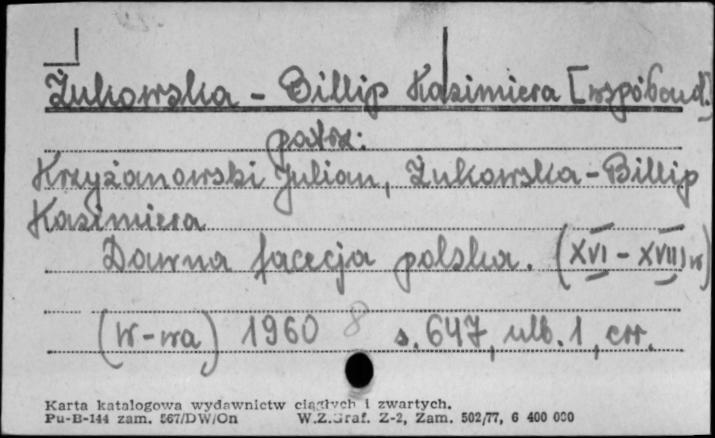 Żukowska - Billip Kazimiera [współaut.]
patrz:
Krzyżanowski Julian, Żukowska-Billip
Kazimiera
Dawna facecja polska. (XVI - XVIII w)
(W-wa) 1960 8 s. 647, nlb. 1, err.
Karta katalogowa wydawnictw ciągłych i zwartych.
Pu-B-144 zam. 567/DW/On W.Z.Graf. Z-2, Zam. 502/77, 6 400 000